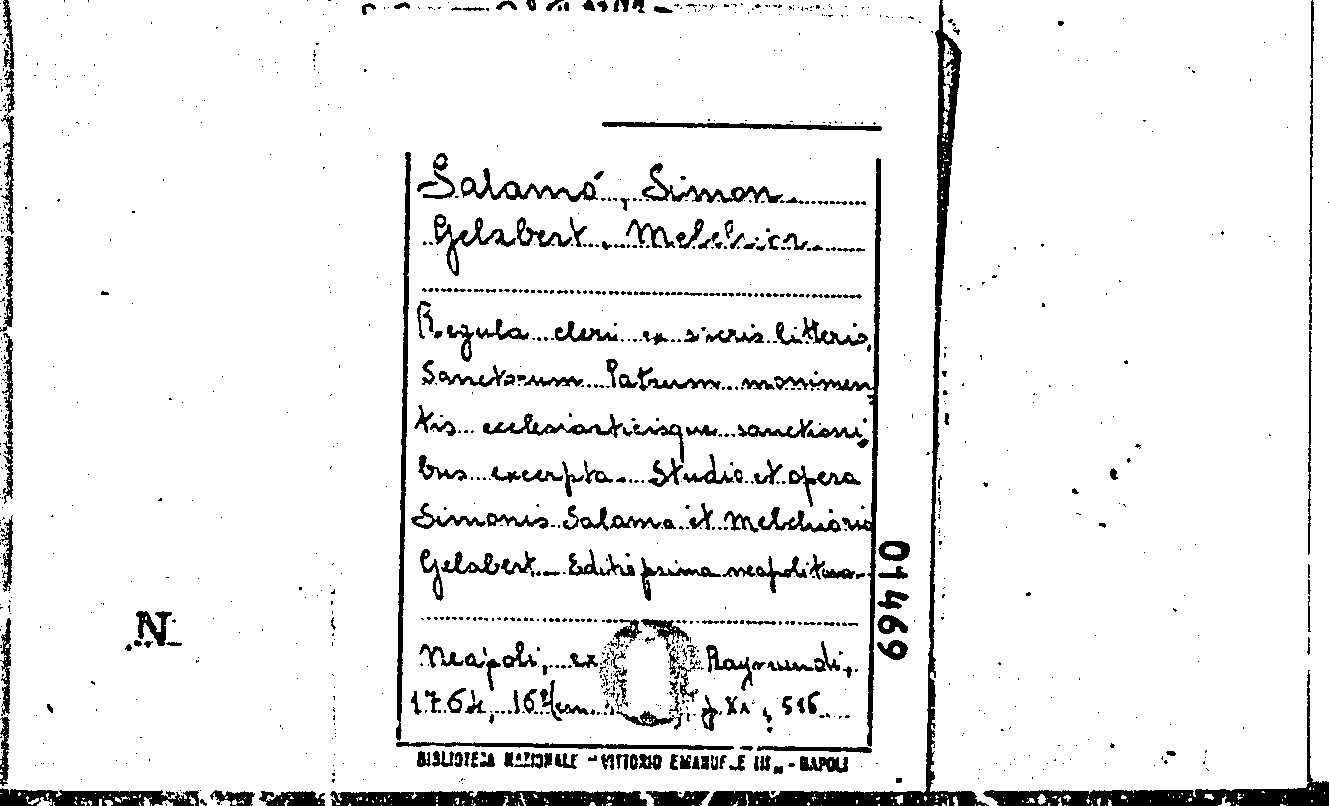 Salamó, Simon
Gelabert, Melchior
Regula cleri ex sacris litteris,
Sanctorum Patrum monimen
tis ecclesiasticisque sanctioni
bus excerpta. Studio et opera
Simonis Salamo et Melchioris
Gelabert. Editio prima neapolitana
Neapoli, ex Raymundi,
1764, 16º p. XX, 516
BIBLIOTECA NAZIONALE "VITTORIO EMANUELE III" - NAPOLI
01469
N